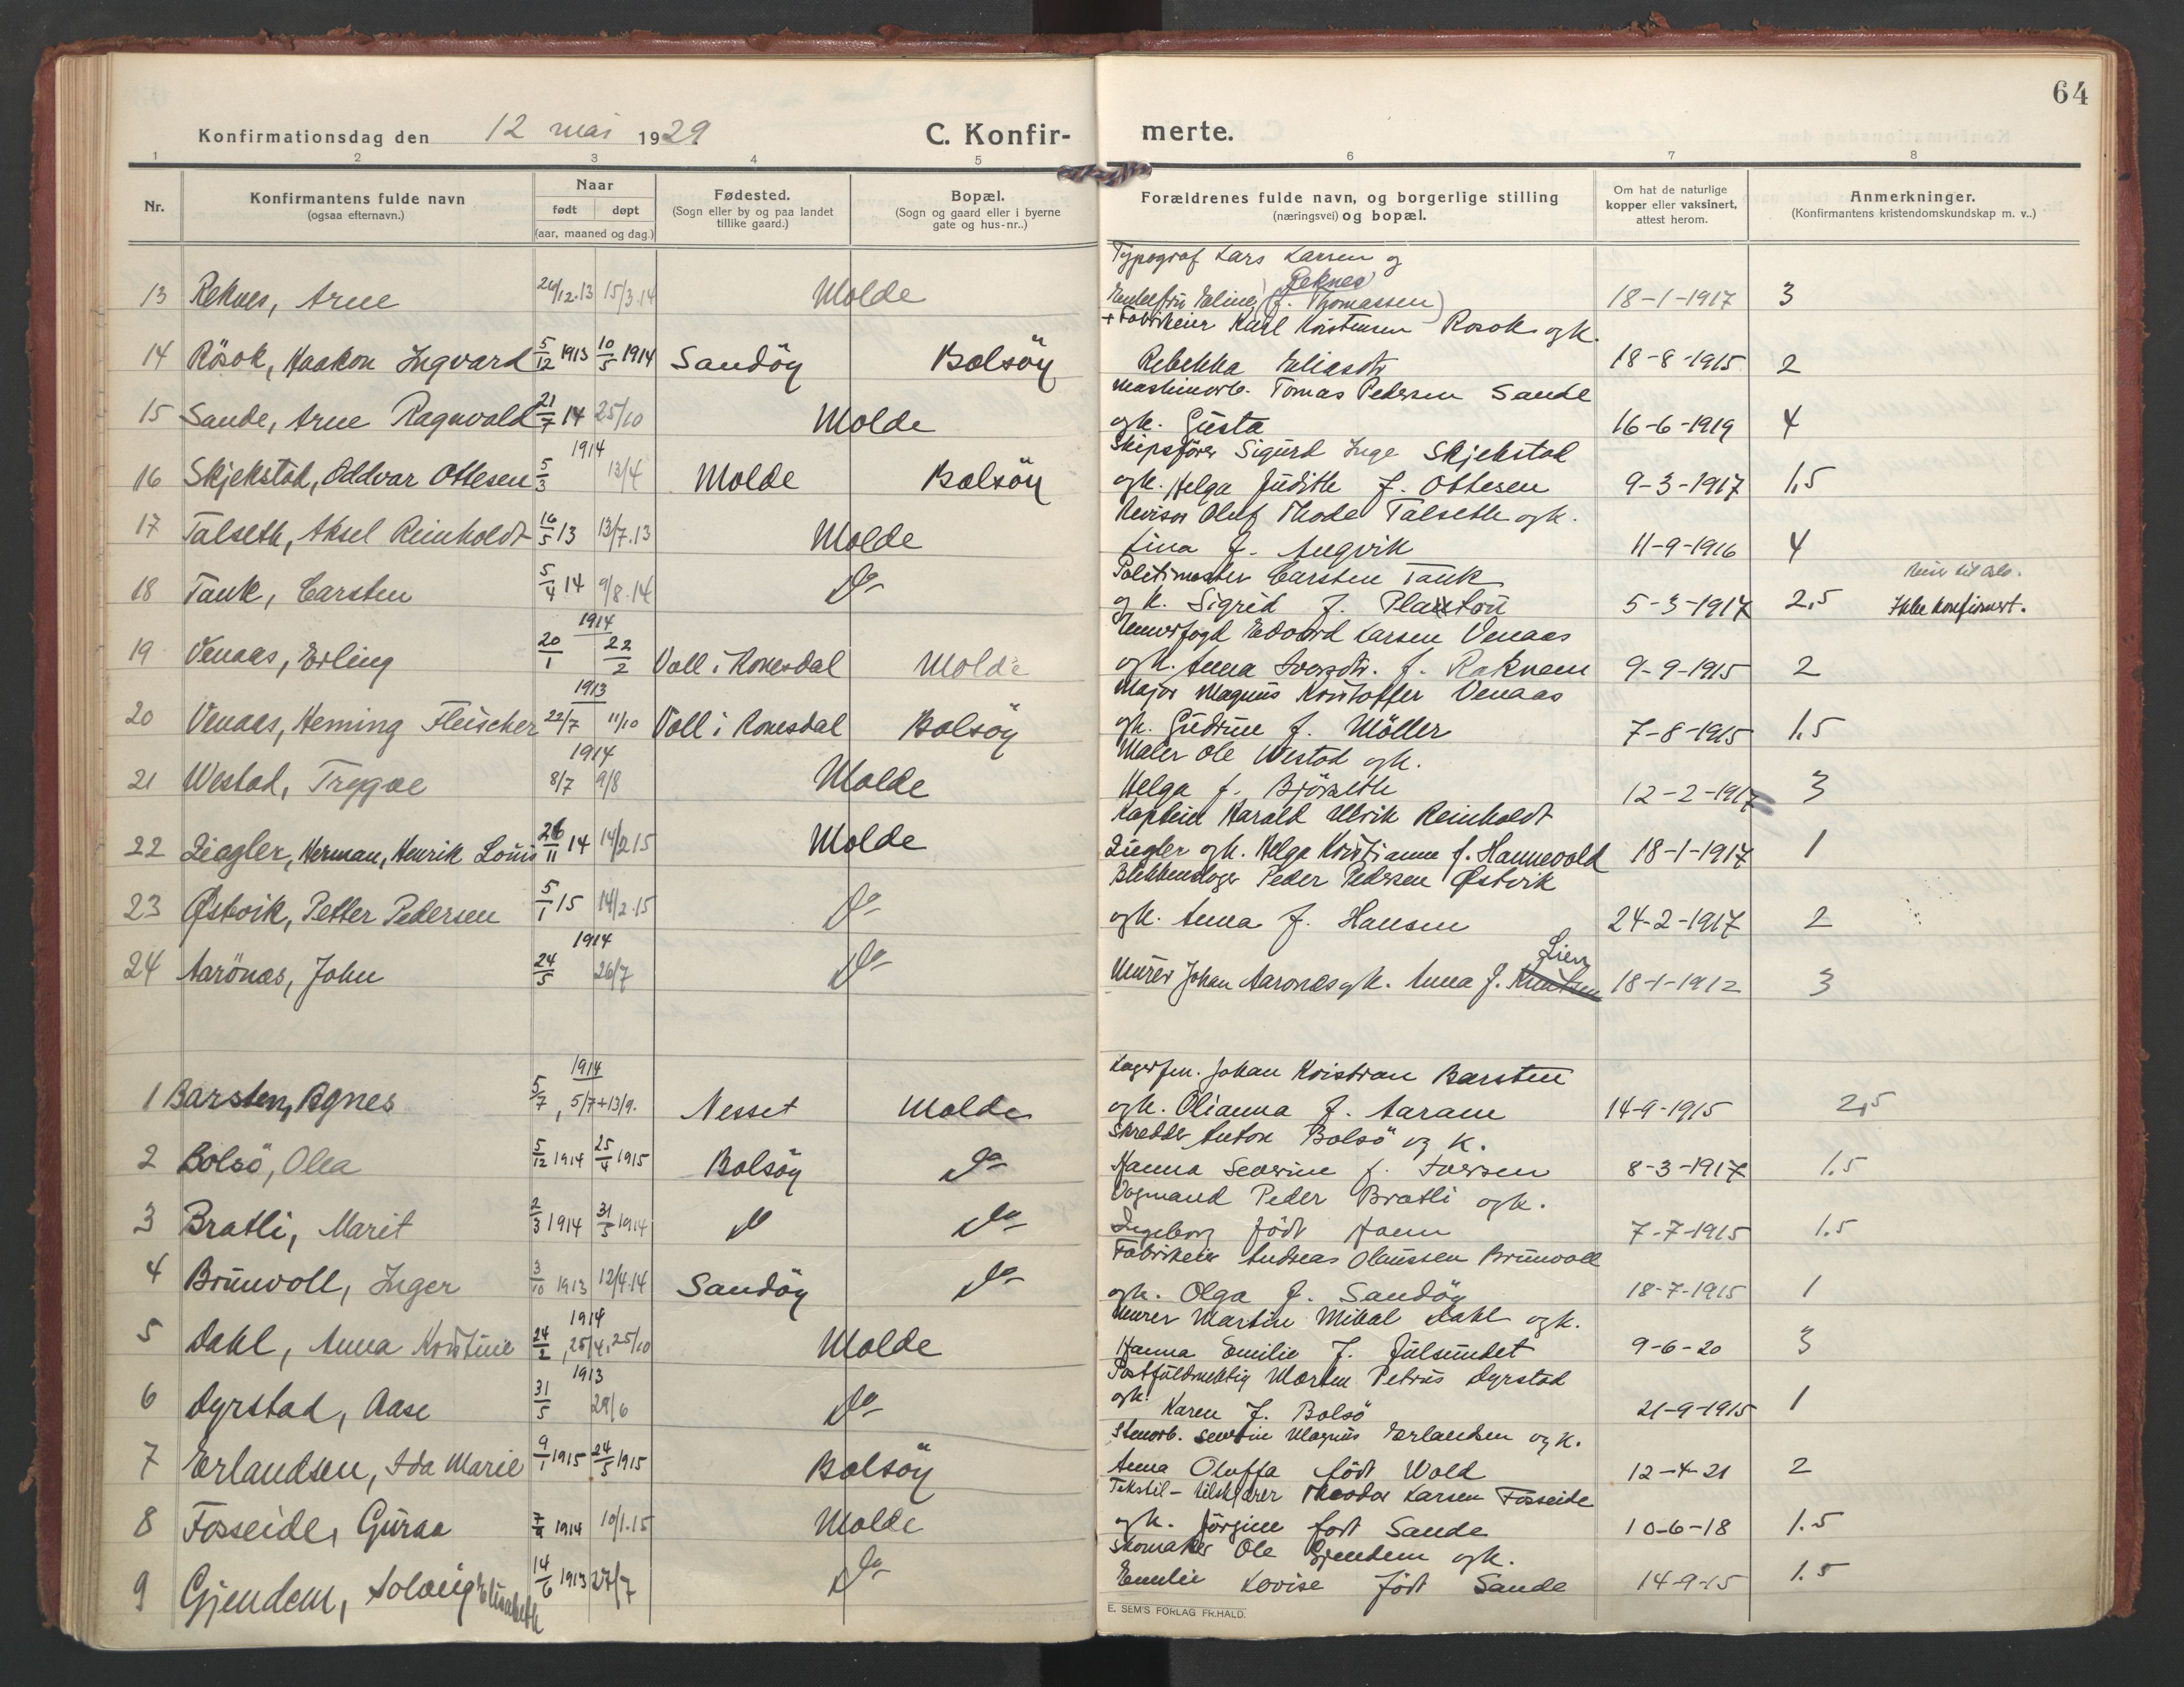 64
Konfirmationsdag den 12 mai 1929 C. Konfir- merte.
1 2 3 4 5 6 7 8
Nr. Konfirmantens fulde navn (ogsaa efternavn.) Naar født døpt (aar, maaned og dag.) Fødested. (Sogn eller by og paa landet tillike gaard.) Bopæl. (Sogn og gaard eller i byerne gate og hus-nr..) Forældrenes fulde navn, og borgerlige stilling (næringsvei) og bopæl. Om hat de naturlige kopper eller vaksinert, attest herom. Anmerkninger. (Konfirmantens kristendomskundskap m. v..)
Typograf Lars Larsen og
Reknes
13 Reknes, Arne 15/3.14 Molde Eline (f. Thomassen) 18-1-1917 3
+ Fabrikeier Karl Kristensen Rosok og k.
14 Rösok, Haakon Ingvard 5/12 1913 10/5 1914 Sandöy Bolsöy Rebekka Eliasdtr 18-8-1915 2
Maskinarb. Tomas Pedersen Sande
15 Sande, Arne Ragnvald 21/7 14 25/10 Molde og k. Gusta 16-6-1919 4
1914 Skipsförer Sigurd Inge Skjekstad
16 Skjekstad, Oddvar Ottesen 5/3 13/4 Molde Bolsöy og k. Helga Judith f. Ottesen 9-3-1917 1,5
Revisor Oluf Thode Talseth og k.
17 Talseth, Aksel Reinholdt 16/5 13 13/7.13 Molde Lina f. Angvik 11-9-1916 4
Politimester Carsten Tank
18 Tank, Carsten 5/4 14 9/8.14 Do og k. Sigrid f. 5-3-1917 2,5 Ikke konfirmert.
1914 Edvard Larsen Venaas
19 Venaas, Erling 20/1 22/2 Voll i Romsdal Molde og k. Anna Iversdtr. f. Raknem 9-9-1915 2
1913 Major Magnus Kristoffer Venaas
20 Venaas, Heming Fleischer 22/7 11/10 Voll i Romsdal Bolsöy og k. Gudrun f. Möller 7-8-1915 1,5
1914 Maler Ole Westad og k.
21 Westad, Trygve 8/7 9/8 Molde Helga f. Björseth 12-2-1917 3
Kaptein Harald Ulrik Reinholdt
22 Ziegler, Herman, Henrik Louis 26/11 14 14/2 15 Molde Ziegler og k. Helga Kristianne f. Hannevold 18-1-1917 1
Blikkenslager Peder Pedersen Østvik
23 Østvik, Petter Pedersen 5/1 15 14/2.15 Do og k. Anna f. Hansen 24-2-1917 2
1914 Lien
24 Aarönæs, John 24/5 26/7 Do Murer Johan Aarönæs og k. Anna f. Knutsen 18-1-1912 3
1914 Lagerfm. Johan Kristian Barsten
1 Barsten, Agnes 5/7, 5/7+13/9. Nesset Molde og k. Olianna f. Aaram 14-9-1915 2,5
Skredder Anton Bolsö og k.
2 Bolsö, Olea 5/12 1914 25/4 1915 Bolsöy Do Hanna Severine f. Iversen 8-3-1917 1.5
Vognmand Peder Bratli og k.
3 Bratli, Marit 2/3 1914 31/5 1914 Do Ingeborg födt 7-7-1915 1.5
Fabrikeier Andreas Olaussen Brunvoll
4 Brunvoll, Inger 3/10 1913 12/4.14 Sandöy Do og k. Olga f. Sandöy 18-7-1915 1
1914 Murer Martin Mikal Dahl og k.
5 Dahl, Anna Kristine 24/2, 25/4, 25/10 Molde Hanna Emilie f. Julsundet 9-6-20 3
1913 Postfuldmektig Morten Petrus Dyrstad
6 Dyrstad, Aase 31/5 29/6 Do og k. Karen f. Bolsö 21-9-1915 1
Stenarb. Severin Magnus Erlandsen og k.
7 Erlandsen, Ida Marie 9/1 1915 24/5 1915 Bolsöy Anna Oluffa födt Wold 12-4-21 2
Tekstil-tilskjærer Theodor Larsen Fosseide
8 Fosseide, Guraa 1914 10/1.15 Molde og k. Jörgine födt Sande 10-6-18 1.5
Skomaker Ole Gjendem og k.
9 Gjendem, Solveig Elisabeth 14/6 1913 27/7 Do Emelie Lovise födt Sande 14-9-15 1.5
E. SEM'S FORLAG FR.HALD.